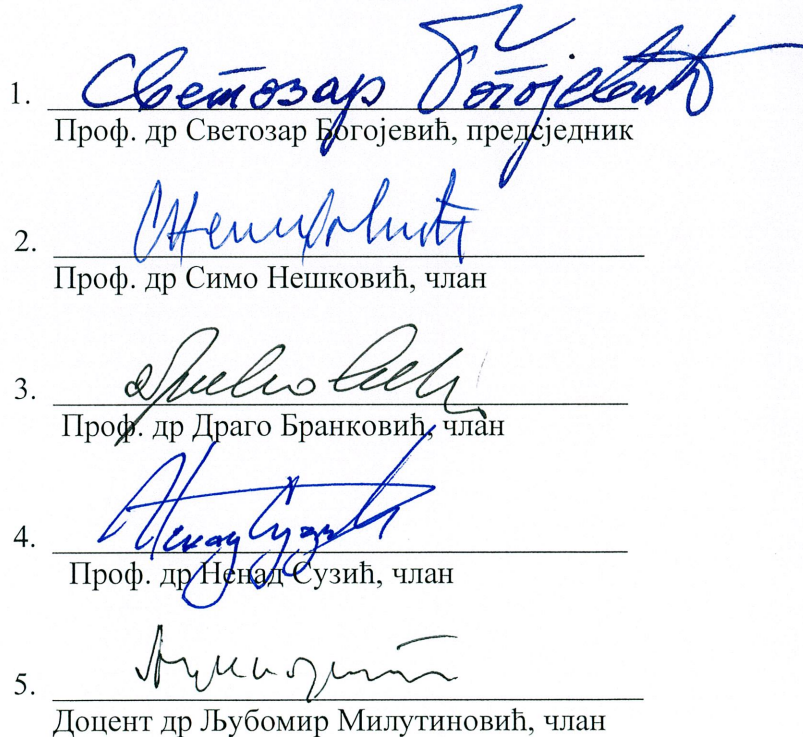 1. Светозар Богојевић
Проф. др Светозар Богојевић, предсједник
2.
Проф. др Симо Нешковић, члан
3.
Проф. др Драго Бранковић, члан
4. Ненад Сузић
Проф. др Ненад Сузић, члан
5.
Доцент др Љубомир Милутиновић, члан